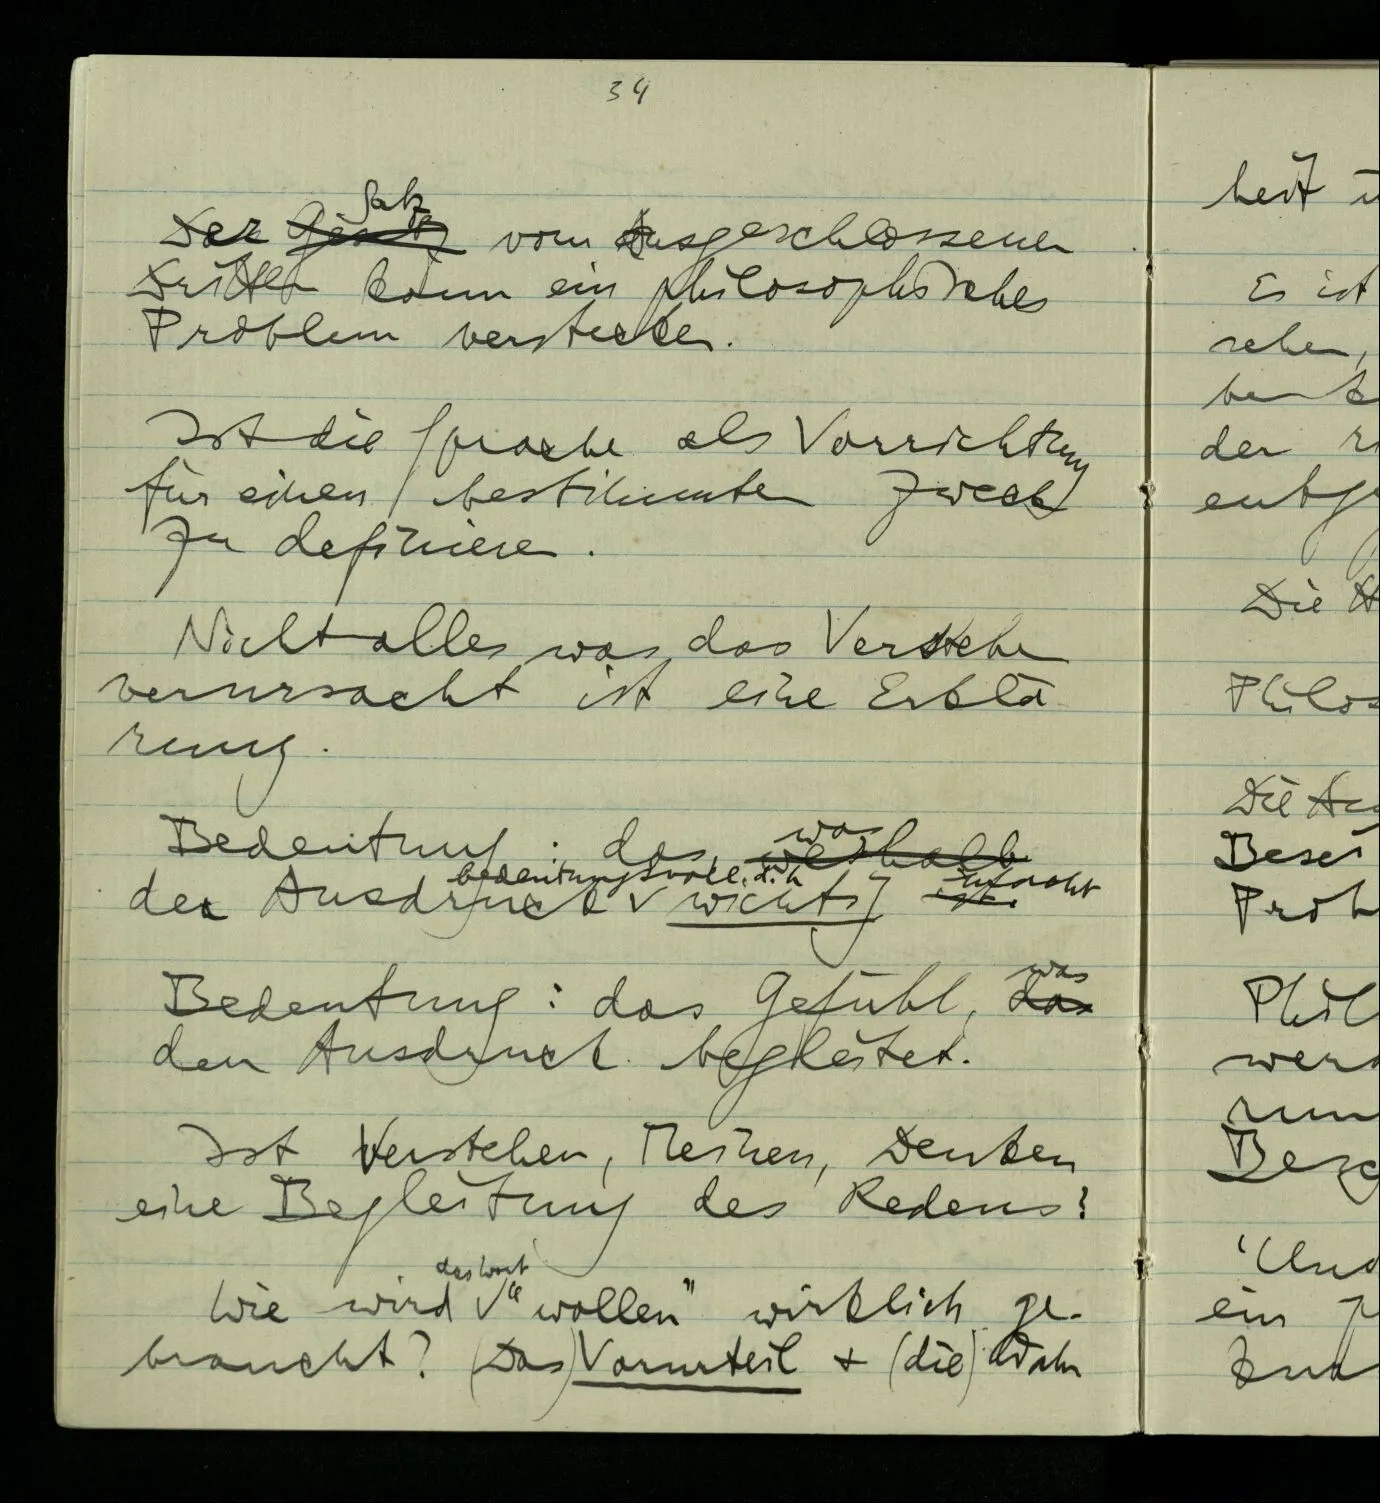 34
Satz
Der Gesetz vom Ausgeschlossenen
Dritten kann ein philosophisches
Problem verstecken.
Ist die Sprache als Vorrichtung
für einen bestimmten Zweck
zu definieren.
Nicht alles was das Verstehen
verursacht ist eine Erklä
rung.
was
Bedeutung: das weshalb
bedeutungsvoll, d.h.
der Ausdruck wichtig ist.
Bedeutung: das Gefühl, das
was
den Ausdruck begleitet.
Ist Verstehen, Meinen, Denken
eine Begleitung des Redens?
das Wort
Wie wird "wollen" wirklich ge-
braucht? (Das) Vorurteil + (die) Wahr
heit
Es ist
sehen,
der
Die
Philos
Die
Besei
Prob
Phil
werd
ein